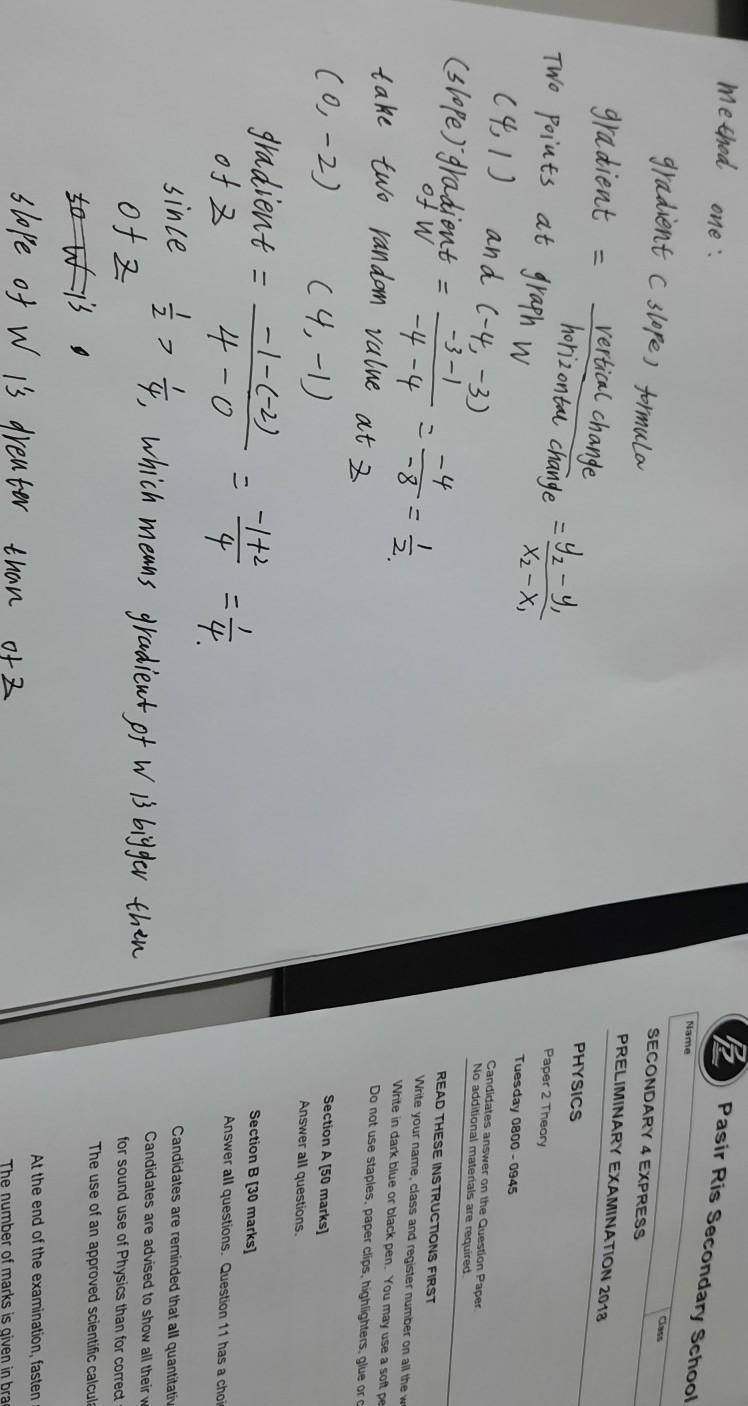 Method one:
gradient (slope) formula
gradient = vertical change / horizontal change = y₂ - y₁ / x₂ - x₁
Two points at graph W
(4, 1) and (-4, -3)
(slope) gradient of W = -3-1 / -4-4 = -4 / -8 = 1/2.
take two random value at Z
(0, -2) (4, -1)
gradient of Z = -1-(-2) / 4-0 = -1+2 / 4 = 1/4.
since 1/2 > 1/4, which means gradient of W is bigger then
of Z
so W is
slope of W is greater than of Z
Pasir Ris Secondary School
Name
Class
SECONDARY 4 EXPRESS
PRELIMINARY EXAMINATION 2018
PHYSICS
Paper 2 Theory
Tuesday 0800 - 0945
Candidates answer on the Question Paper.
No additional materials are required.
READ THESE INSTRUCTIONS FIRST
Write your name, class and register number on all the
Write in dark blue or black pen. You may use a soft
Do not use staples, paper clips, highlighters, glue or
Section A [50 marks]
Answer all questions.
Section B [30 marks]
Answer all questions. Question 11 has a
Candidates are reminded that all
Candidates are advised to show all their
for sound use of Physics than for correct
The use of an approved scientific
At the end of the examination, fasten
The number of marks is given in